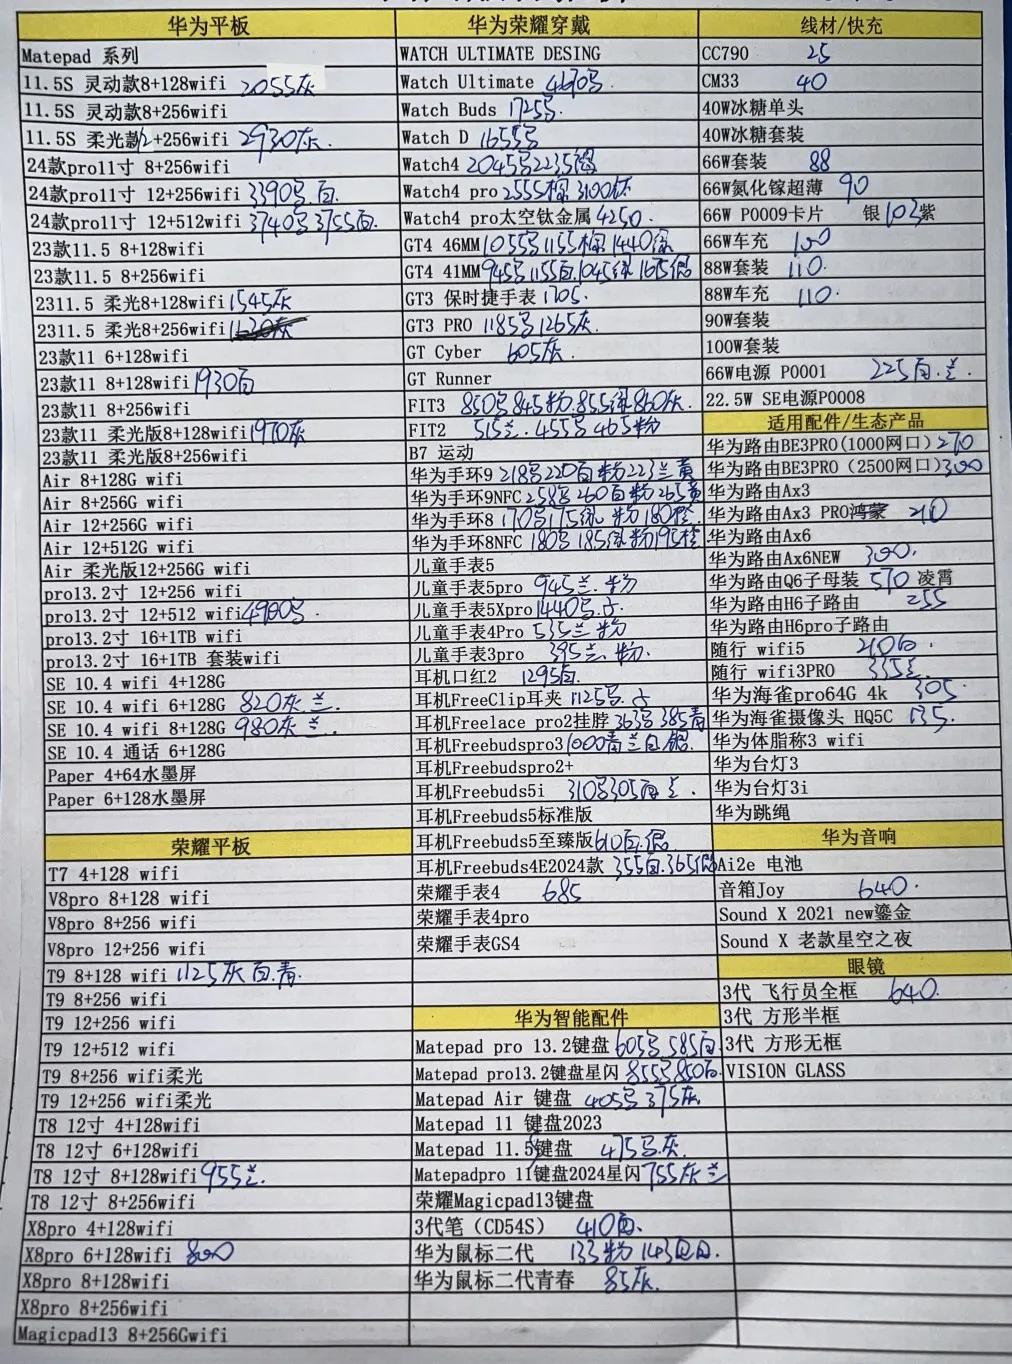 华为平板
Matepad 系列
11.5S 灵动款8+128wifi 2055灰
11.5S 灵动款8+256wifi
11.5S 柔光款12+256wifi 2930灰.
24款pro11寸 8+256wifi
24款pro11寸 12+256wifi 3390号.白.
24款pro11寸 12+512wifi 3740号3755白.
23款11.5 8+128wifi
23款11.5 8+256wifi
2311.5 柔光8+128wifi 1545灰
2311.5 柔光8+256wifi
23款11 6+128wifi
23款11 8+128wifi 1930白
23款11 8+256wifi
23款11 柔光版8+128wifi 1970灰
23款11 柔光版8+256wifi
Air 8+128G wifi
Air 8+256G wifi
Air 12+256G wifi
Air 12+512G wifi
Air 柔光版12+256G wifi
pro13.2寸 12+256 wifi
pro13.2寸 12+512 wifi 4980号.
pro13.2寸 16+1TB wifi
pro13.2寸 16+1TB 套装wifi
SE 10.4 wifi 4+128G
SE 10.4 wifi 6+128G 820灰 兰.
SE 10.4 wifi 8+128G 980灰 兰.
SE 10.4 通话 6+128G
Paper 4+64水墨屏
Paper 6+128水墨屏
荣耀平板
T7 4+128 wifi
V8pro 8+128 wifi
V8pro 8+256 wifi
V8pro 12+256 wifi
T9 8+128 wifi 1125灰 白.青.
T9 8+256 wifi
T9 12+256 wifi
T9 12+512 wifi
T9 8+256 wifi柔光
T9 12+256 wifi柔光
T8 12寸 4+128wifi
T8 12寸 6+128wifi
T8 12寸 8+128wifi 955兰.
T8 12寸 8+256wifi
X8pro 4+128wifi
X8pro 6+128wifi 800
X8pro 8+128wifi
X8pro 8+256wifi
Magicpad13 8+256Gwifi
华为荣耀穿戴
WATCH ULTIMATE DESING
Watch Ultimate 4670号.
Watch Buds 1725号.
Watch D 1655号
Watch4 2045号2235
Watch4 pro 2555棕 3100
Watch4 pro太空钛金属 4250.
GT4 46MM 1055号1155棕 1440绿
GT4 41MM 945号1155白.1045绿 1675银
GT3 保时捷手表 1705.
GT3 PRO 1185号1265灰.
GT Cyber 605灰.
GT Runner
FIT3 850号845粉.855绿860灰.
FIT2 515兰. 455号 465粉
B7 运动
华为手环9 218号220白 粉 223兰 黄
华为手环9NFC 258号 260白 粉 265黄
华为手环8 170号175绿. 粉 180橙
华为手环8NFC 180号 185绿 粉195橙
儿童手表5
儿童手表5pro 945兰.粉
儿童手表5Xpro 1440号.
儿童手表4Pro 535兰 粉
儿童手表3pro 395兰.粉.
耳机口红2 1295白.
耳机FreeClip耳夹 1125号.
耳机Freelace pro2挂脖 363号 385青
耳机Freebudspro3 1000青 兰 白 银
耳机Freebudspro2+
耳机Freebuds5i 310号305白 兰.
耳机Freebuds5标准版
耳机Freebuds5至臻版 610白.银
耳机Freebuds4E2024款 355白.365银
荣耀手表4 685
荣耀手表4pro
荣耀手表GS4
华为智能配件
Matepad pro 13.2键盘 605号 585白
Matepad pro13.2键盘星闪 855号850白
Matepad Air 键盘 405号 375灰
Matepad 11 键盘2023
Matepad 11.5键盘 475号.灰.
Matepadpro 11键盘2024星闪 755灰 兰
荣耀Magicpad13键盘
3代笔（CD54S） 410白.
华为鼠标二代 133粉 143
华为鼠标二代青春 85灰.
线材/快充
CC790 25
CM33 40
40W冰糖单头
40W冰糖套装
66W套装 88
66W氮化镓超薄 90
66W P0009卡片 银 103紫
66W车充 100
88W套装 110.
88W车充 110.
90W套装
100W套装
66W电源 P0001 225白.兰.
22.5W SE电源P0008
适用配件/生态产品
华为路由BE3PRO(1000网口) 270
华为路由BE3PRO（2500网口)300
华为路由Ax3
华为路由Ax3 PRO鸿蒙 210
华为路由Ax6
华为路由Ax6NEW 300.
华为路由Q6子母装 570 凌霄
华为路由H6子路由 255
华为路由H6pro子路由
随行 wifi5 .
随行 wifi3PRO 335兰.
华为海雀pro64G 4k 305.
华为海雀摄像头 HQ5C 135.
华为体脂称3 wifi
华为台灯3
华为台灯3i
华为跳绳
华为音响
Ai2e 电池
音箱Joy 640.
Sound X 2021 new鎏金
Sound X 老款星空之夜
眼镜
3代 飞行员全框 640.
3代 方形半框
3代 方形无框
VISION GLASS